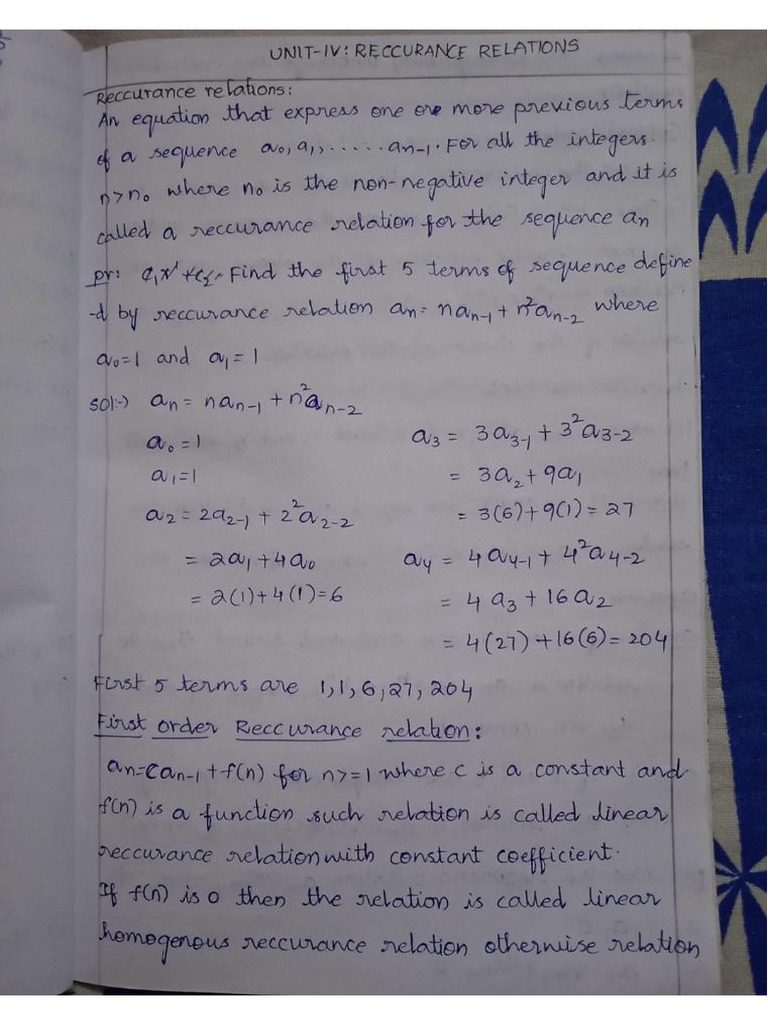 UNIT-IV: RECCURANCE RELATIONS
Reccurance relations:
An equation that express one or more previous terms
of a sequence a₀, a₁, ..... aₙ₋₁. For all the integers
n>n₀ where n₀ is the non-negative integer and it is
called a reccurance relation for the sequence aₙ
pr: Find the first 5 terms of sequence define
-d by reccurance relation aₙ = naₙ₋₁ + n²aₙ₋₂ where
a₀=1 and a₁=1
sol:-) aₙ = naₙ₋₁ + n²aₙ₋₂
a₀ = 1
a₁=1
a₂ = 2a₂₋₁ + 2²a₂₋₂
= 2a₁+4a₀
= 2(1)+4(1)=6
a₃ = 3a₃₋₁ + 3²a₃₋₂
= 3a₂+9a₁
= 3(6)+9(1) = 27
a₄ = 4a₄₋₁ + 4²a₄₋₂
= 4a₃+16a₂
= 4(27)+16(6)=204
First 5 terms are 1,1,6,27,204
First order Reccurance relation:
aₙ=caₙ₋₁+f(n) for n>=1 where c is a constant and
f(n) is a function such relation is called linear
reccurance relation with constant coefficient.
If f(n) is 0 then the relation is called linear
homogenous reccurance relation otherwise relation